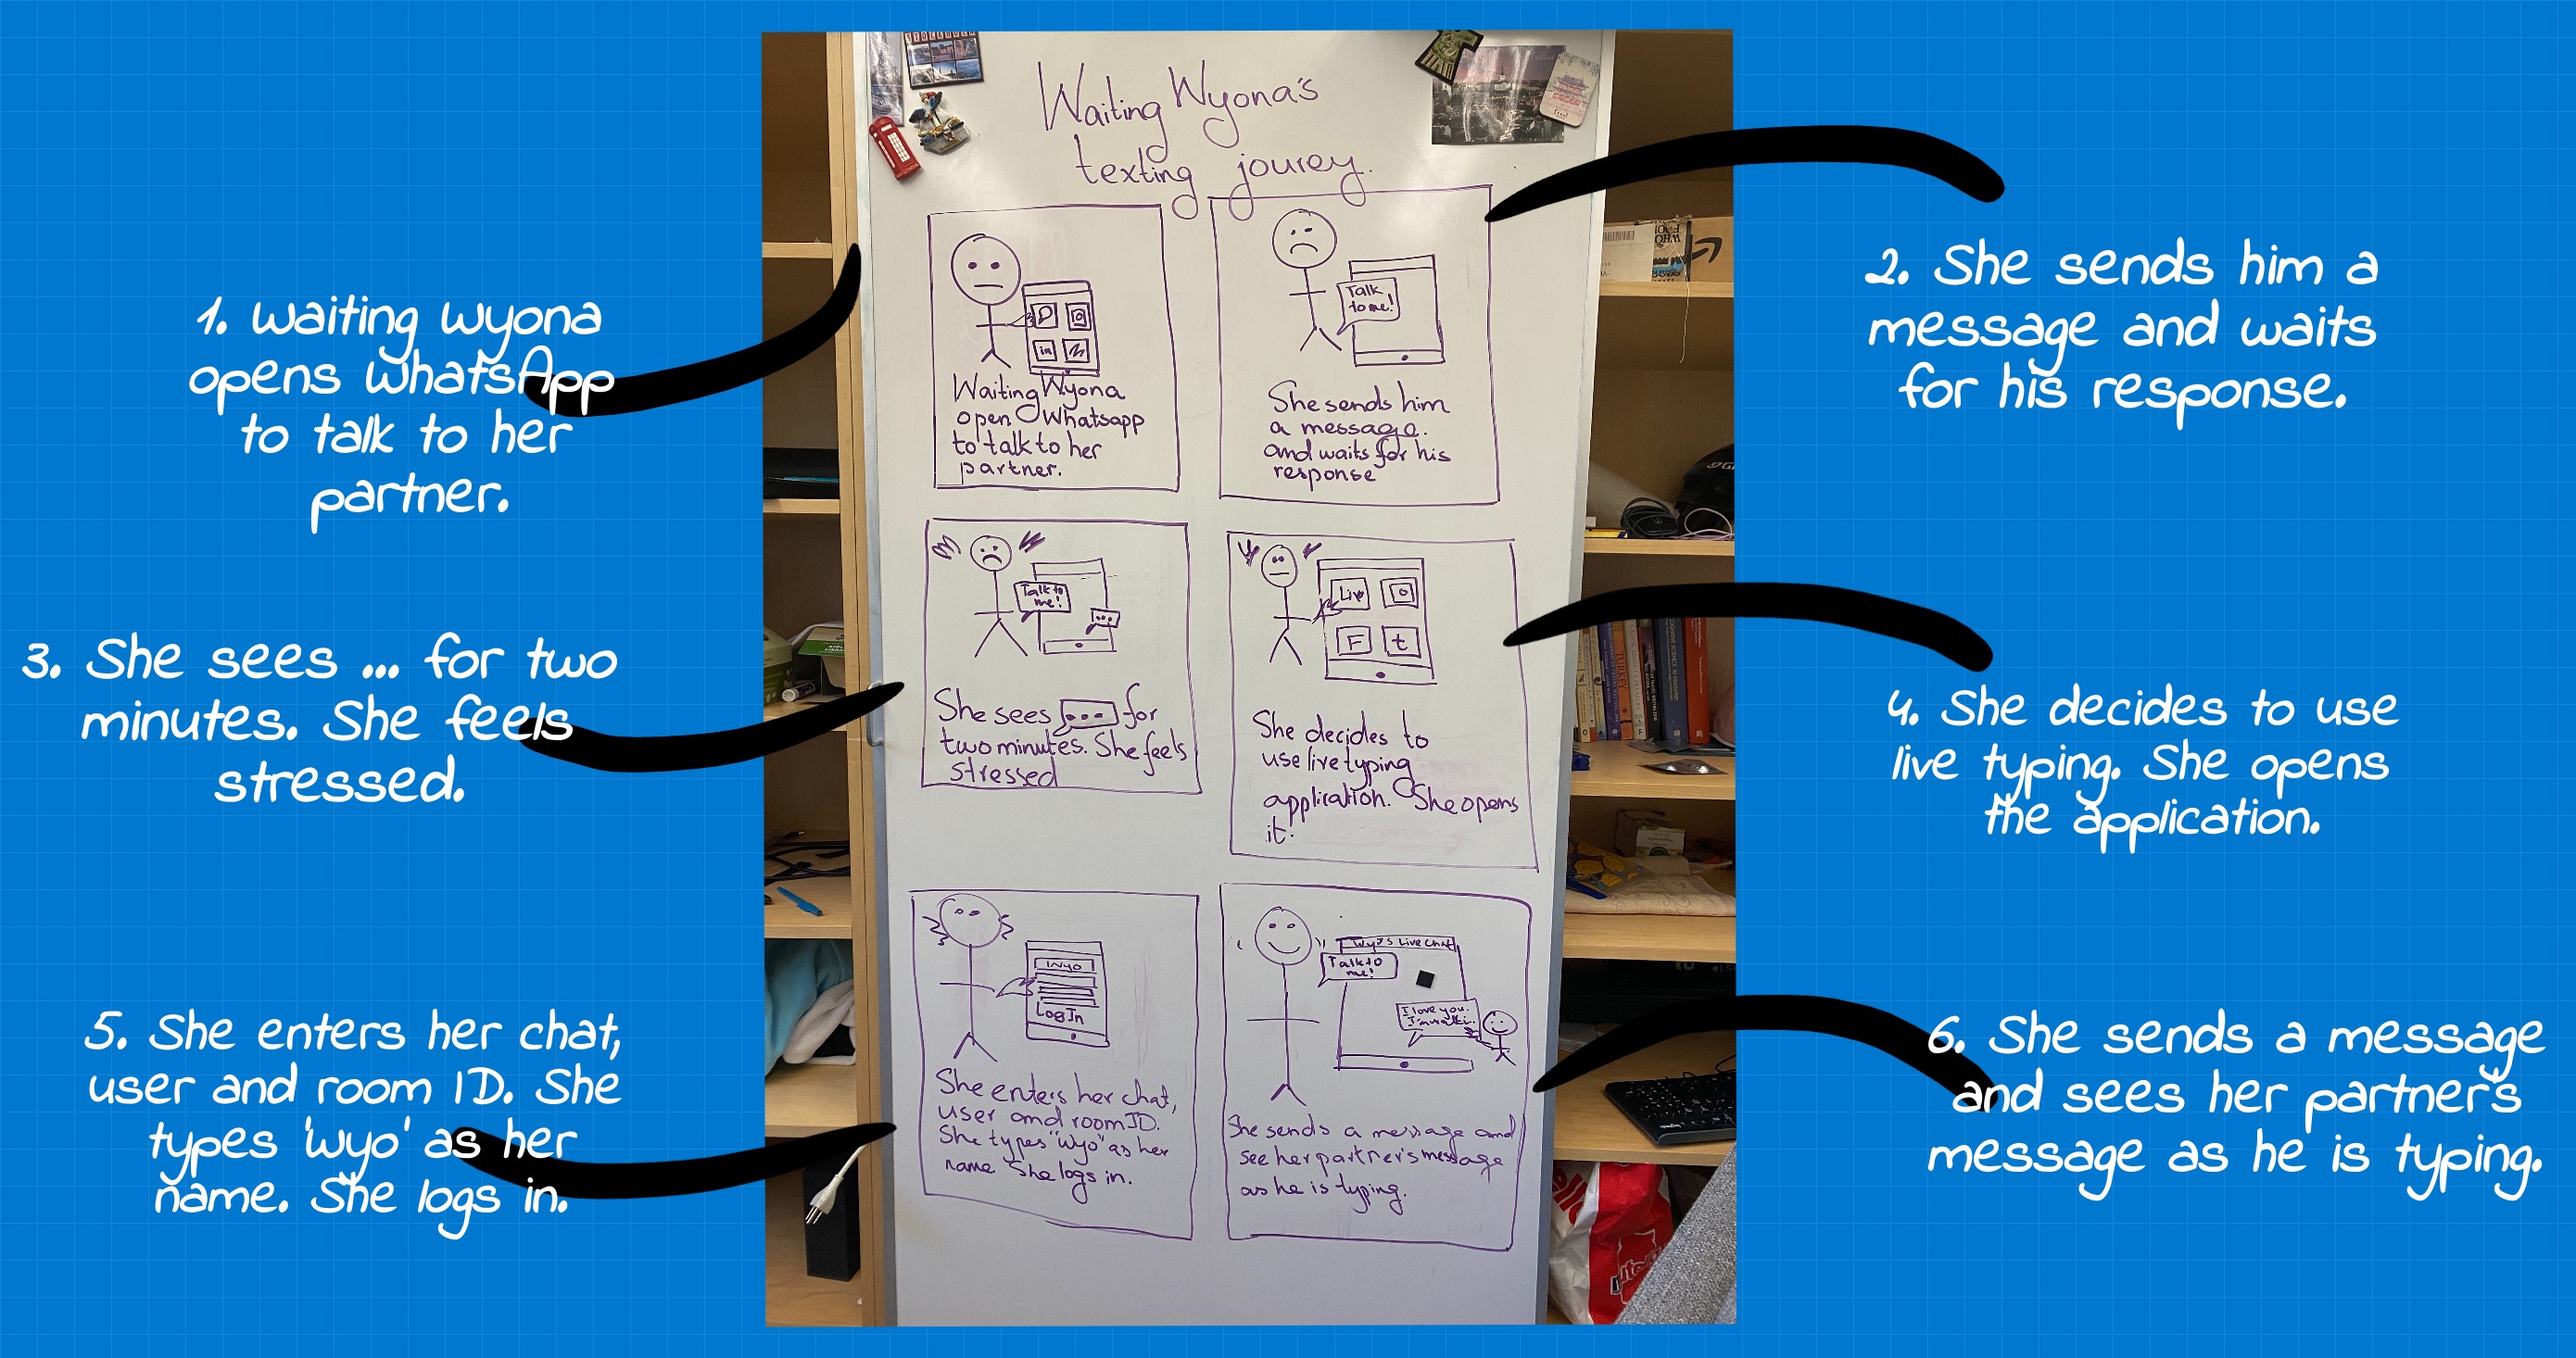 Waiting Wyona's
texting jourey.
1. Waiting Wyona
opens WhatsApp
to talk to her
partner.
Waiting Wyona
open Whatsapp
to talk to her
partner.
Talk
to me!
She sends him
a message.
and waits for his
response
2. She sends him a
message and waits
for his response.
3. She sees ... for two
minutes. She feels
stressed.
Talk to
me!
...
She sees ... for
two minutes. She feels
stressed
Live
F t
She decides to
use live typing
application. She opens
it.
4. She decides to use
live typing. She opens
the application.
5. She enters her chat,
user and room ID. She
types 'Wyo' as her
name. She logs in.
Wyo
Log In
She enters her chat,
user and room ID.
She types "Wyo" as her
name She logs in.
Wyo's Live Chat
Talk to
me!
I love you.
She sends a message and
see her partner's message
as he is typing.
6. She sends a message
and sees her partner's
message as he is typing.
in